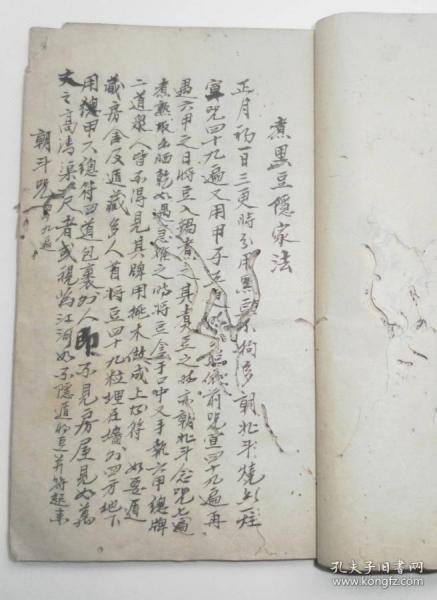 煮黑豆隱家法
正月初一日三更時分用黑豆不拘多 朝北斗燒香一炷
宣咒四十九遍又用甲子 前咒宣四十九遍再
遇六甲之日將豆入鍋煮之其煮豆之時亦朝北斗念咒七遍
煮熟取出晒乾如遇急難之時將豆含于口中又手執六甲總牌
二道衆人皆不得見其牌用桃木做成上書符 如要遁
藏房舍及遁藏多人者將豆四十九粒埋在墻外四方地下
用總甲六總符四道包裹外人即不見房屋見如萬
丈之高 者或視為江河如不隱遁時豆并符起來
朝斗咒 四十九遍
孔夫子旧书网
www.kongfz.com